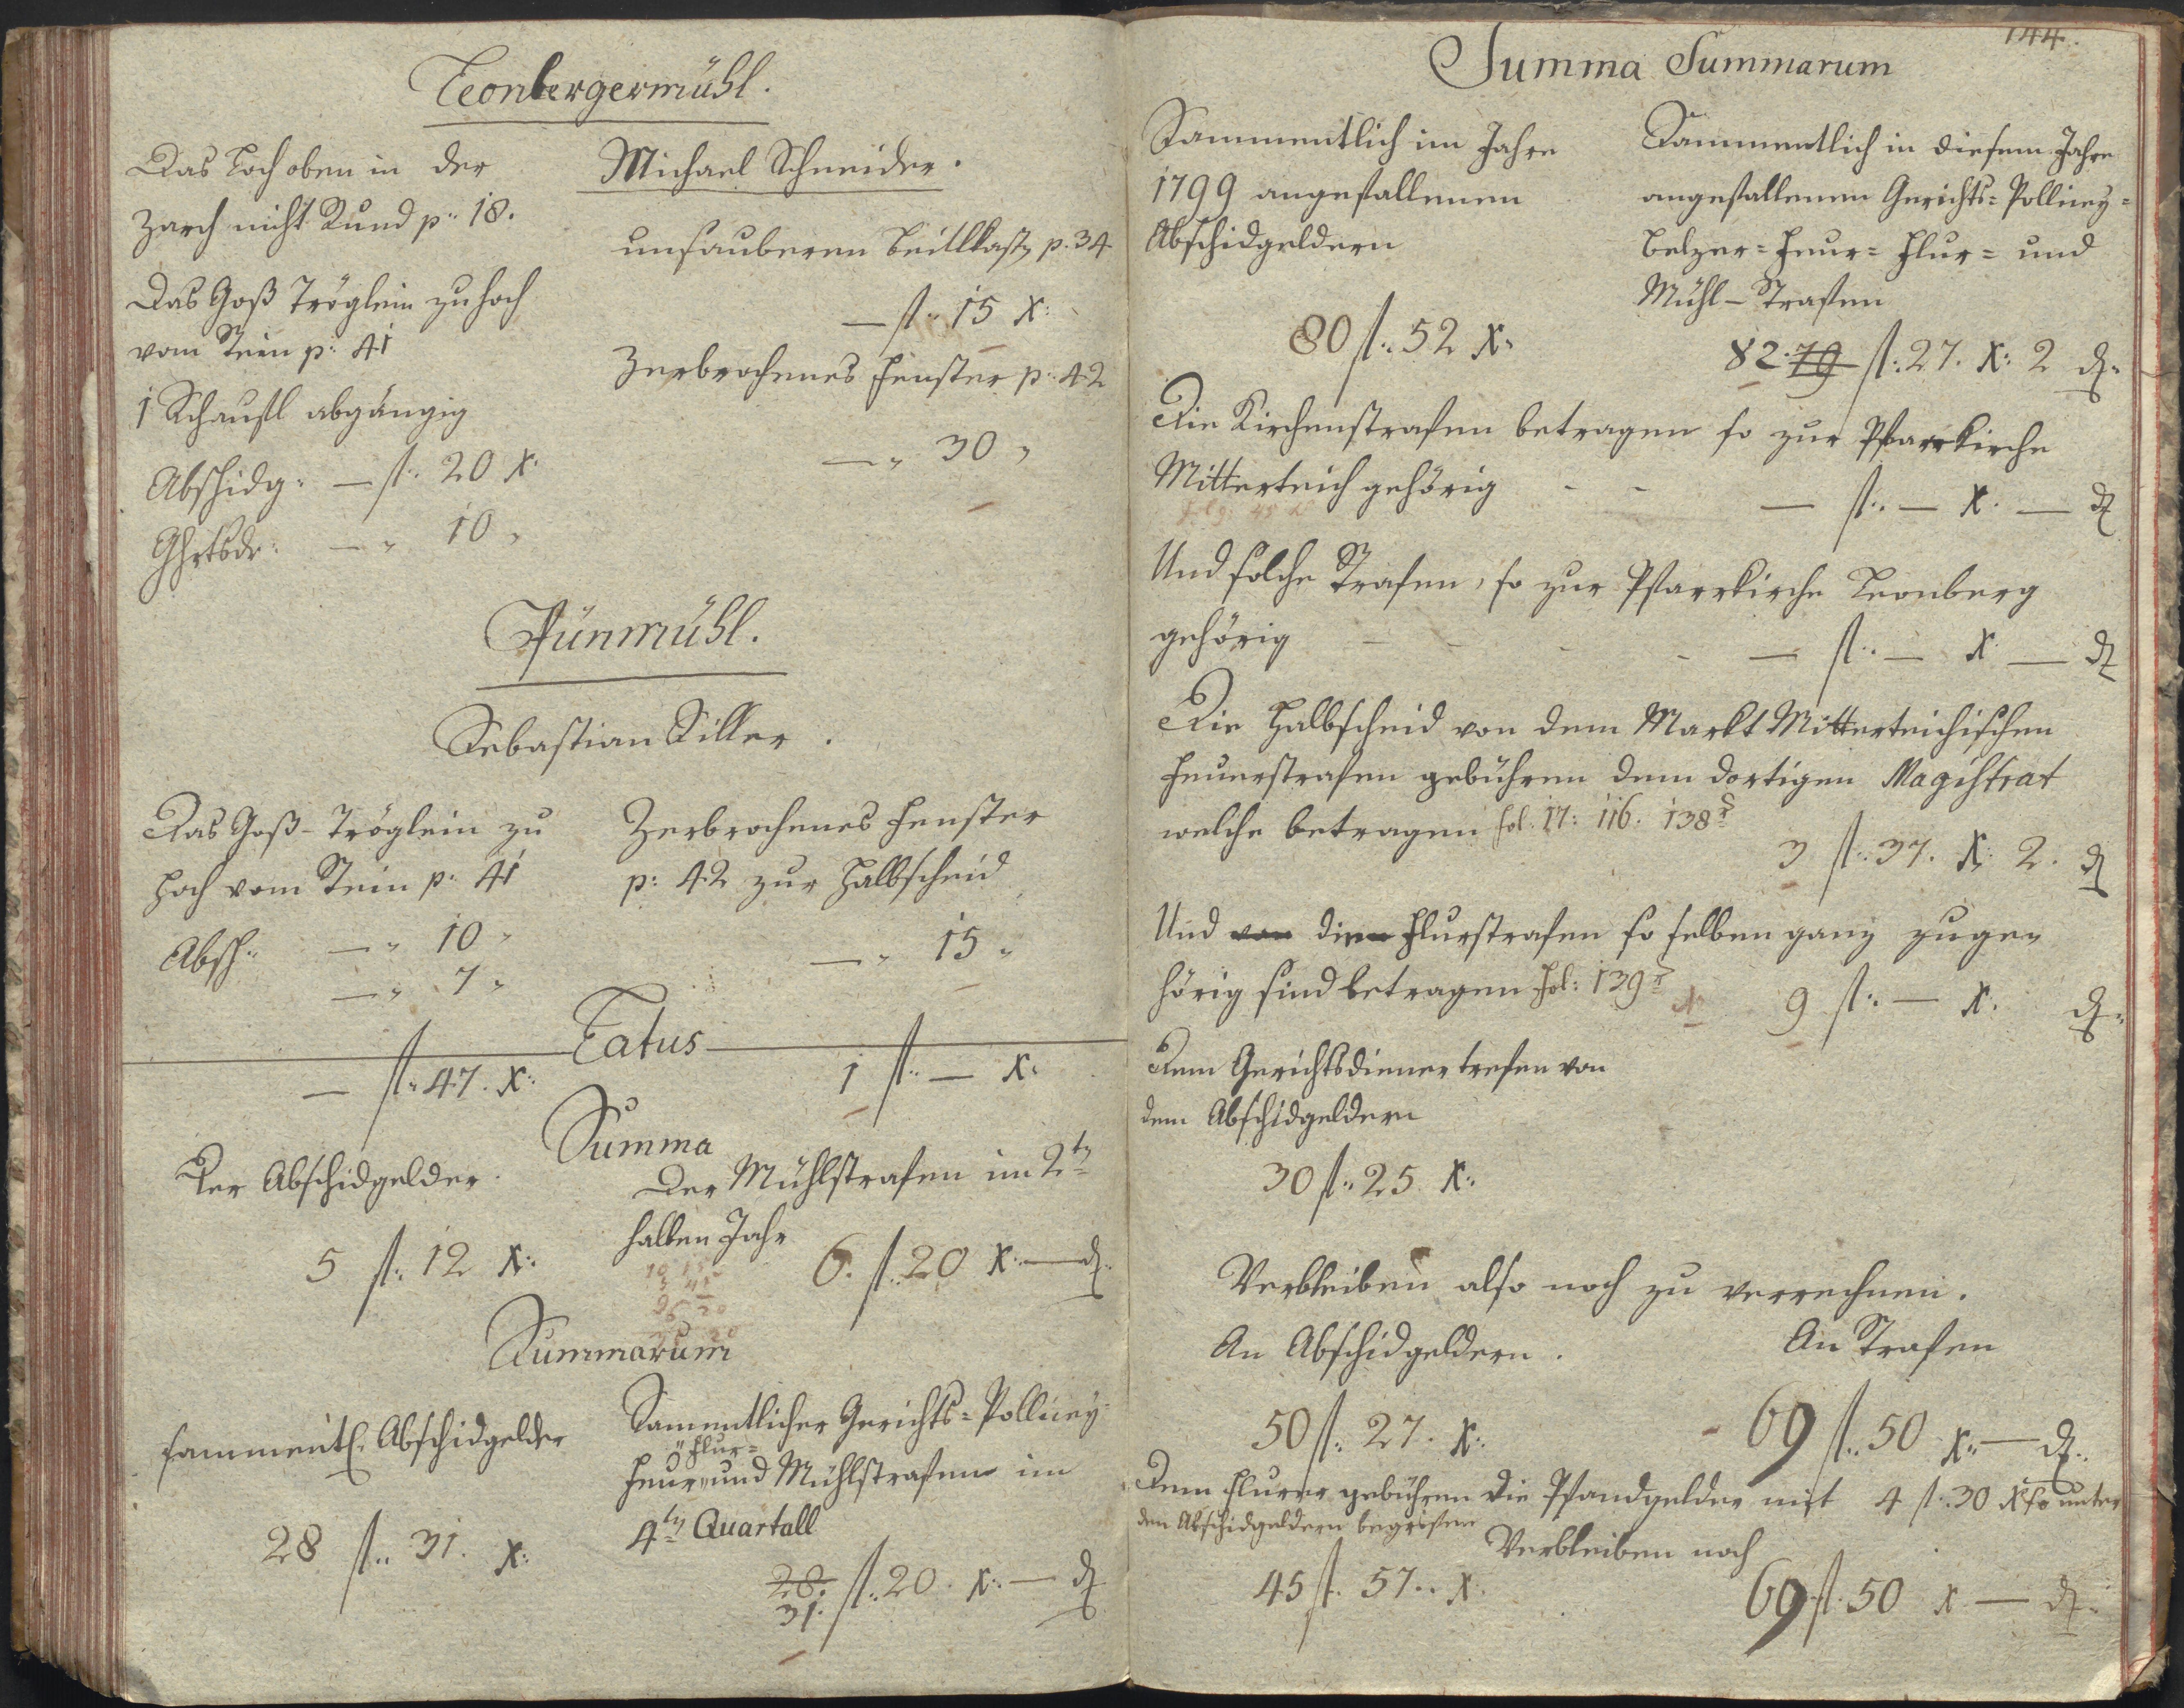 Leonbergermühl.
Michael Schneider.
Das Loch oben in der
Zarch nicht Rund p: 18.
Das Goß Tröglein zu hoch
vom Stein p: 41
1 Schaufl abgängig
Abschidg: — fl: 20 X:
Ghrtsdr: — " 10 "
unsauberen Beitlkast p. 34
— fl: 15 X:
Zerbrochenes Fenster p: 42
— " 30 "
Pünmühl.
Sebastian Siller.
Das Goß-Tröglein zu
hoch vom Stein p: 41
Absch: — " 10 "
— " 7 "
Zerbrochenes Fenster
p: 42 zur Halbscheid
— " 15 "
Latus
— fl: 47. X:
1 fl: — X:
Summa
Der Abschidgelder.
5 fl: 12 X:
Der Mühlstrafen im 2tn
halben Jahr
6. fl. 20 X: — d.
Summarum
sammentl. Abschidgelder
28 fl: 31. X:
Sammentlicher Gerichts= Pollicey=
Flur=
Feuer und Mühlstrafen im
4tn Quartall
28. fl: 20. X: — d
31.
144.
Summa Summarum
Sammentlich im Jahre
1799 angefallenen
Abschidgeldern
80 fl: 52 X:
Sammentlich in diesem Jahre
angefallenen Gerichts= Pollicey=
Belzer= Feur= Flur= und
Mühl-Strafen
82. 79 fl: 27. X: 2 d.
Die Kirchenstrafen betragen so zur Pfarrkirche
Mitterteich gehörig - - — fl: — X. — d
Und solche Strafen, so zur Pfarrkirche Leonberg
gehörig - - - - — fl: — X. — d
Die Halbscheid von dem Markt Mitterteichischen
Feuerstrafen gebühren dem dortigen Magistrat
welche betragen fol. 17: 116. 138
3 fl: 37. X: 2. d
Und von dien Flurstrafen so selben ganz zuge=
hörig sind betragen fol: 139
9 fl: — X. d.
Dem Gerichtsdiener trefen von
dem Abschidgeldern
30 fl: 25 X:
Verbleiben also noch zu verrechnen.
An Abschidgeldern.
An Strafen
50 fl: 27. X:
69 fl: 50 X: — d.
Dem Flurer gebühren die Pfandgelder mit 4 fl: 30 X so unter
den Abschidgeldern begrifen
Verbleiben noch
45 fl. 57.. X.
69 fl. 50 X — d.